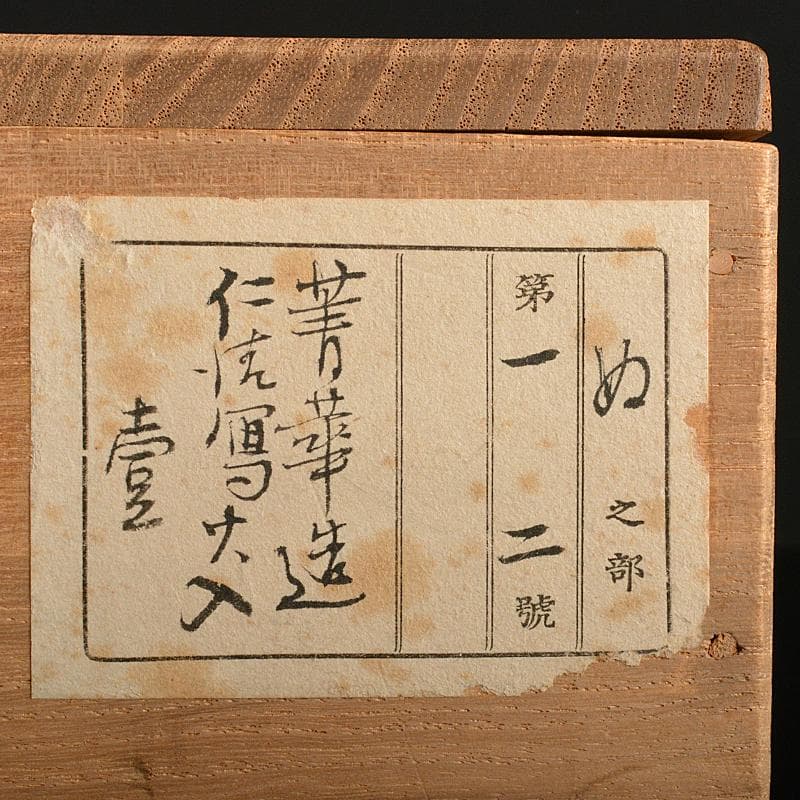 ぬ之部
第一二號
菁華造
仁清寫火入
壹